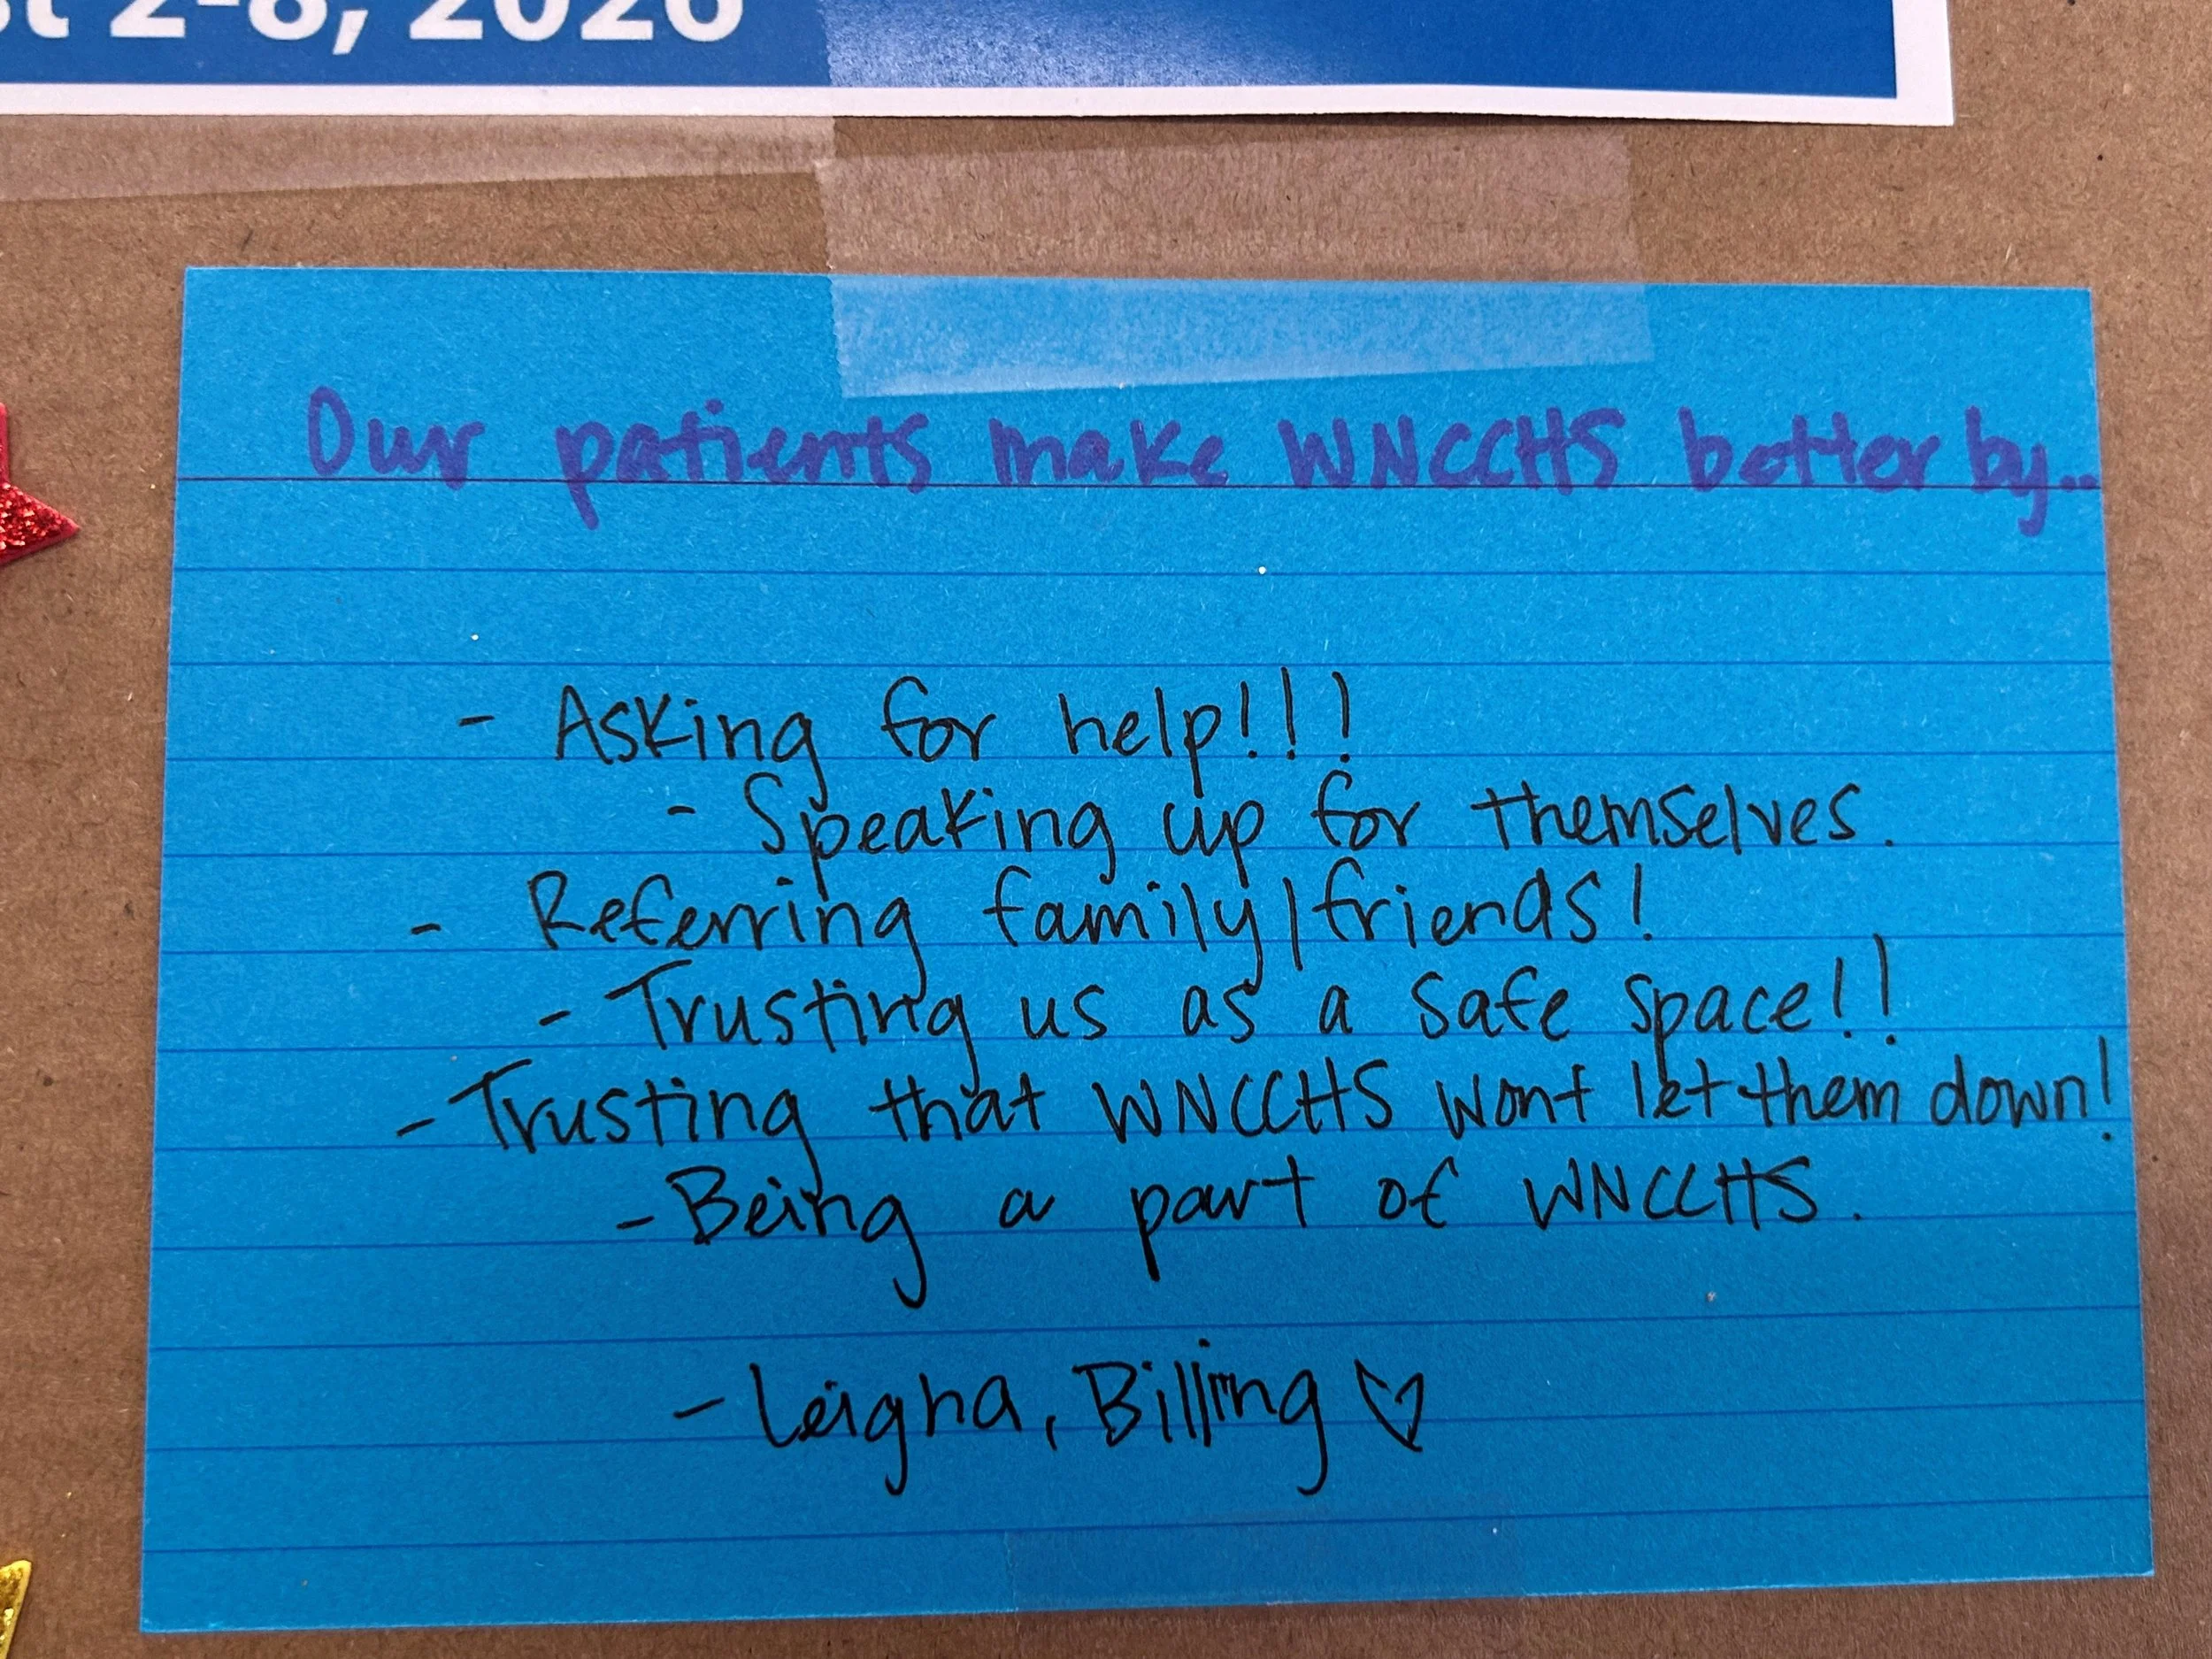 2-8, 2026
Our patients make WNCCHS better by...
- Asking for help!!!
- Speaking up for themselves.
- Referring family/friends!
- Trusting us as a safe space!!
- Trusting that WNCCHS wont let them down!
- Being a part of WNCCHS.
- Leigha, Billing ♡